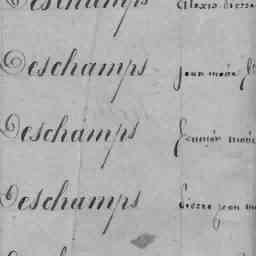 Deschamps Alexis Pierre
Deschamps jean marie
Deschamps
Deschamps Pierre jean